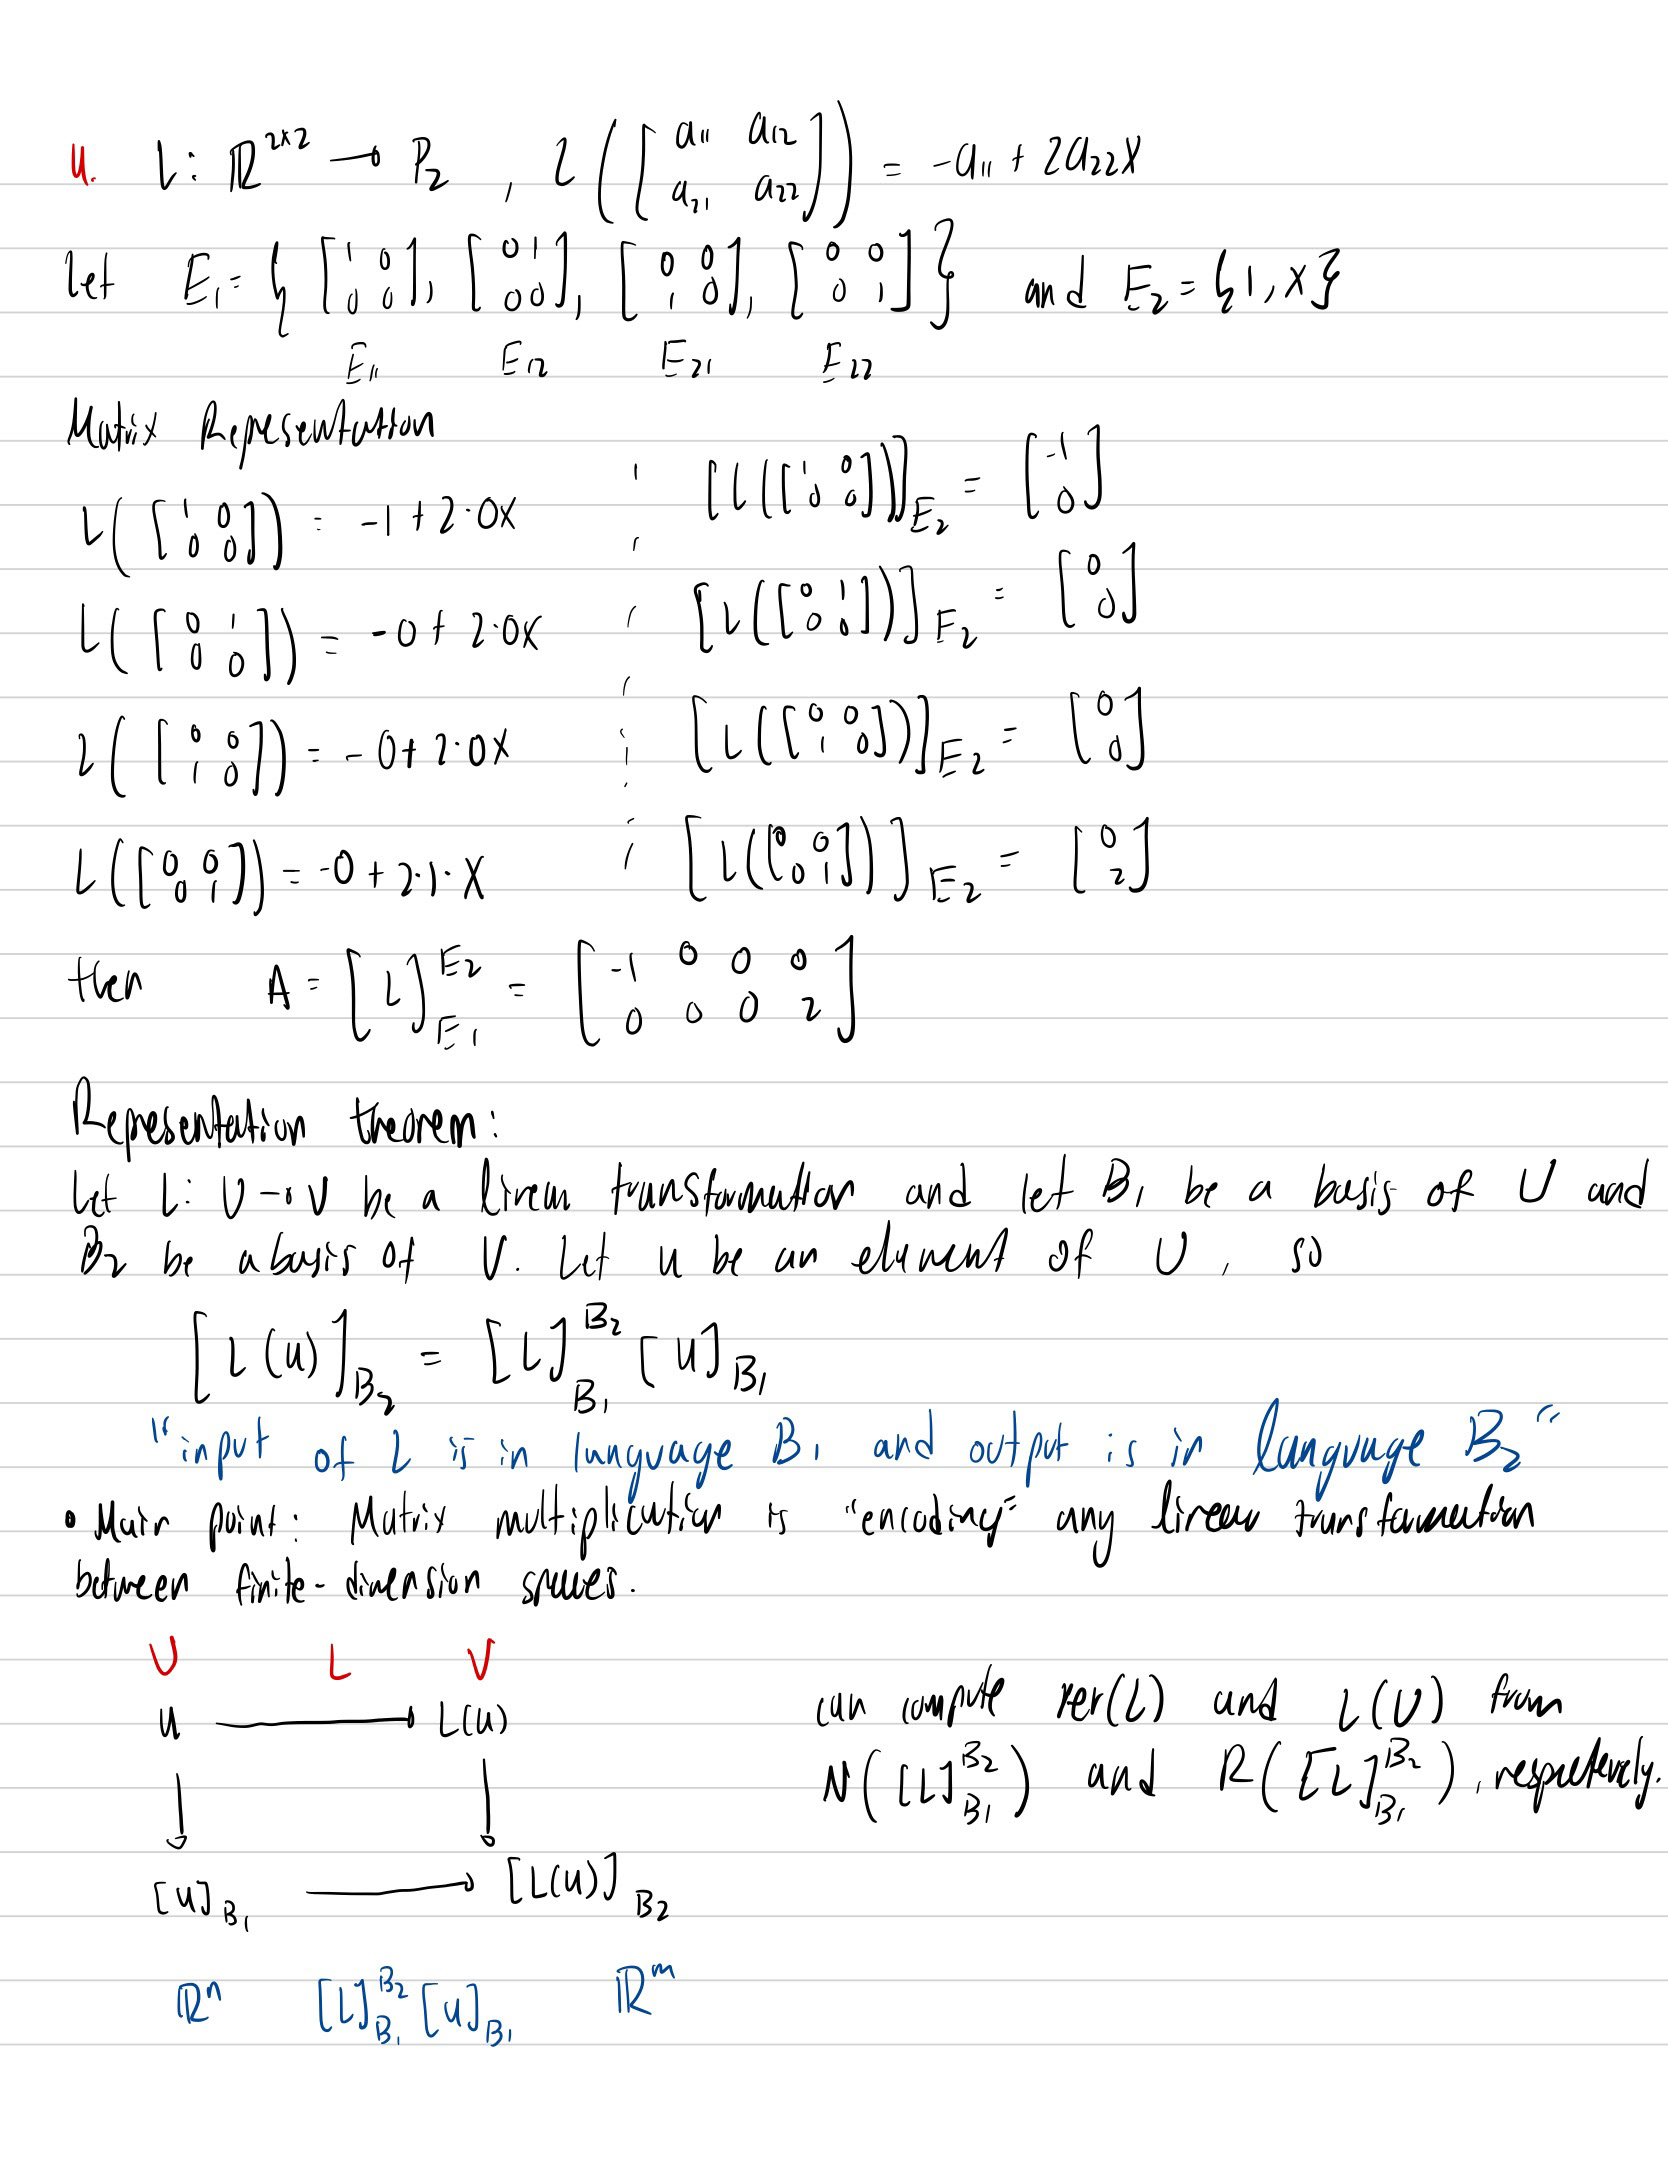 4. L: ℝ^{2×2} → P₂ , L([a₁₁ a₁₂; a₂₁ a₂₂]) = -a₁₁ + 2a₂₂x
Let E₁ = { [1 0; 0 0], [0 1; 0 0], [0 0; 1 0], [0 0; 0 1] } and E₂ = {1, x}
E₁₁ E₁₂ E₂₁ E₂₂
Matrix Representation
L([1 0; 0 0]) = -1 + 2·0x [L([1 0; 0 0])]_{E₂} = [-1; 0]
L([0 1; 0 0]) = -0 + 2·0x [L([0 1; 0 0])]_{E₂} = [0; 0]
L([0 0; 1 0]) = -0 + 2·0x [L([0 0; 1 0])]_{E₂} = [0; 0]
L([0 0; 0 1]) = -0 + 2·1·x [L([0 0; 0 1])]_{E₂} = [0; 2]
then A = [L]_{E₁}^{E₂} = [-1 0 0 0; 0 0 0 2]
Representation theorem:
Let L: U → V be a linear transformation and let B₁ be a basis of U and
B₂ be a basis of V. Let u be an element of U, so
[L(u)]_{B₂} = [L]_{B₁}^{B₂} [u]_{B₁}
"input of L is in language B₁ and output is in language B₂"
• Main point: Matrix multiplication is "encoding" any linear transformation
between finite-dimension spaces.
U L V
u → L(u)
can compute ker(L) and L(U) from
N([L]_{B₁}^{B₂}) and R([L]_{B₁}^{B₂}), respectively.
[u]_{B₁} → [L(u)]_{B₂}
ℝⁿ [L]_{B₁}^{B₂} [u]_{B₁} ℝᵐ